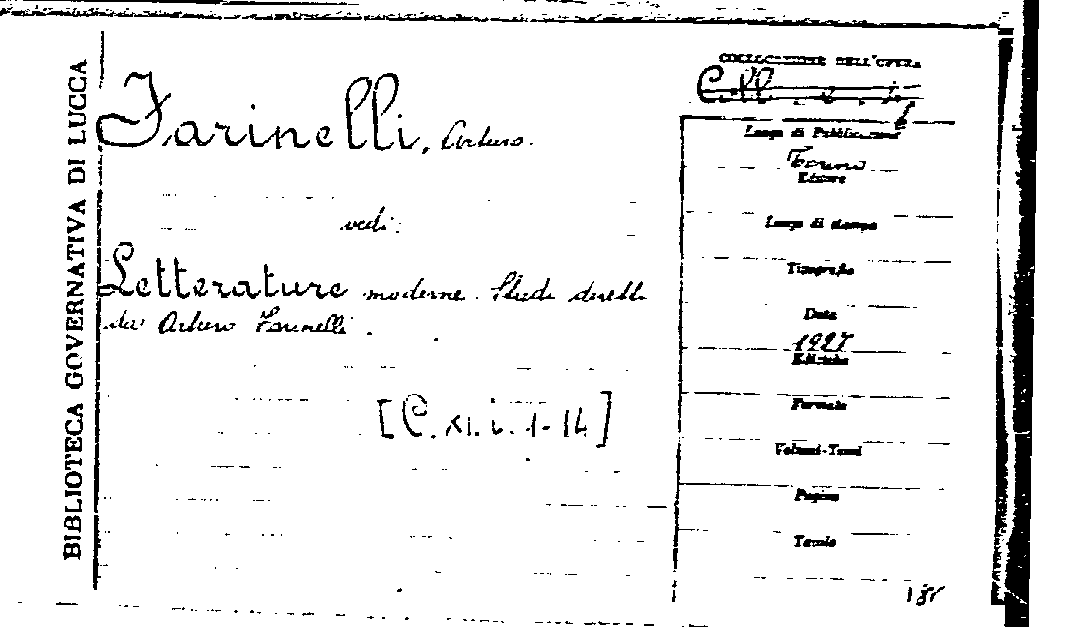 BIBLIOTECA GOVERNATIVA DI LUCCA
Farinelli, Arturo.
vedi:
Letterature moderne. Studi diretti
da Arturo Farinelli.
[C. XI. i. 1-14]
COLLOCAZIONE DELL'OPERA
Luogo di Pubblicazione
Torino
Editore
Luogo di stampa
Tipografia
Data
1927
Edizione
Formato
Volumi-Tomi
Pagine
Tavole